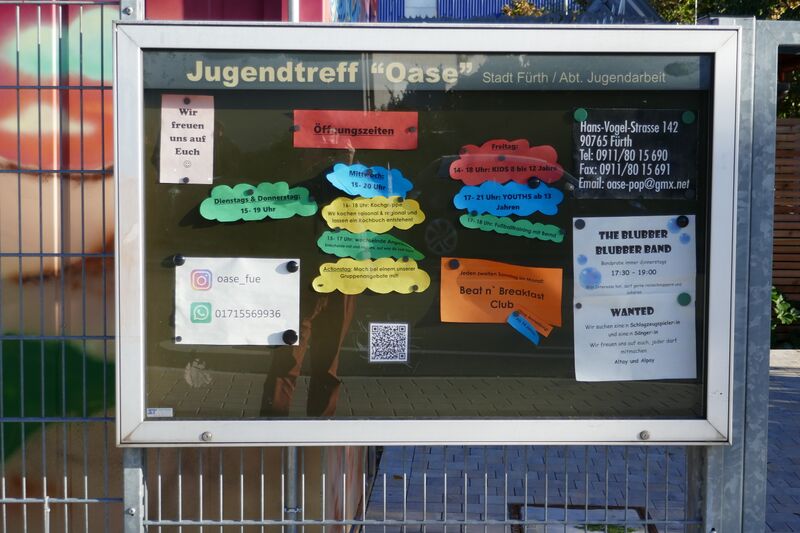 Jugendtreff "Oase" Stadt Fürth / Abt. Jugendarbeit
Wir
freuen
uns auf
Euch
☺
Öffnungszeiten
Dienstags & Donnerstag:
15-19 Uhr
Mittwoch:
15-20 Uhr
16-18 Uhr: Kochgruppe
Wir kochen saisonal & regional und
lassen ein Kochbuch entstehen!
15-17 Uhr: wechselnde
Actionstag: Mach bei einem unserer
Gruppenangebote mit!
Freitag:
14-18 Uhr: KIDS 8 bis 12 Jahre
17-21 Uhr: YOUTHS ab 13
Jahren
17-18 Uhr: Fußballtraining mit Bernd
Hans-Vogel-Strasse 142
90765 Fürth
Tel: 0911/80 15 690
Fax: 0911/80 15 691
Email: oase-pop@gmx.net
oase_fue
01715569936
Jeden zweiten Samstag im Monat:
Beat n` Breakfast
Club
THE BLUBBER
BLUBBER BAND
Bandprobe immer donnerstags
17:30 - 19:00
WANTED
Wir suchen eine/n Schlagzeugspieler-in
und eine/n Sänger-in
Wir freuen uns auf euch, jeder darf
mitmachen
Altay und Alpay